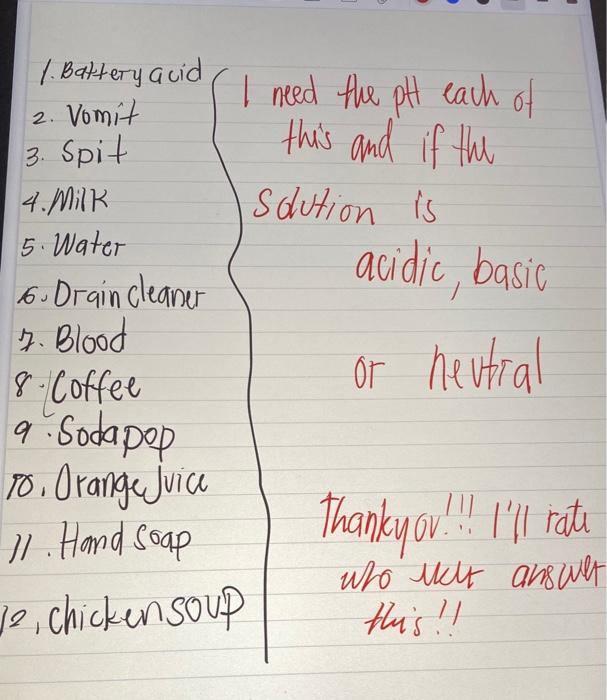 1. Battery acid
2. Vomit
3. Spit
4. Milk
5. Water
6. Drain cleaner
7. Blood
8. Coffee
9. Soda pop
10. Orange Juice
11. Hand soap
12. chicken soup
I need the pH each of
this and if the
solution is
acidic, basic
or neutral
Thank you!!! I'll rate
who answer
this!!